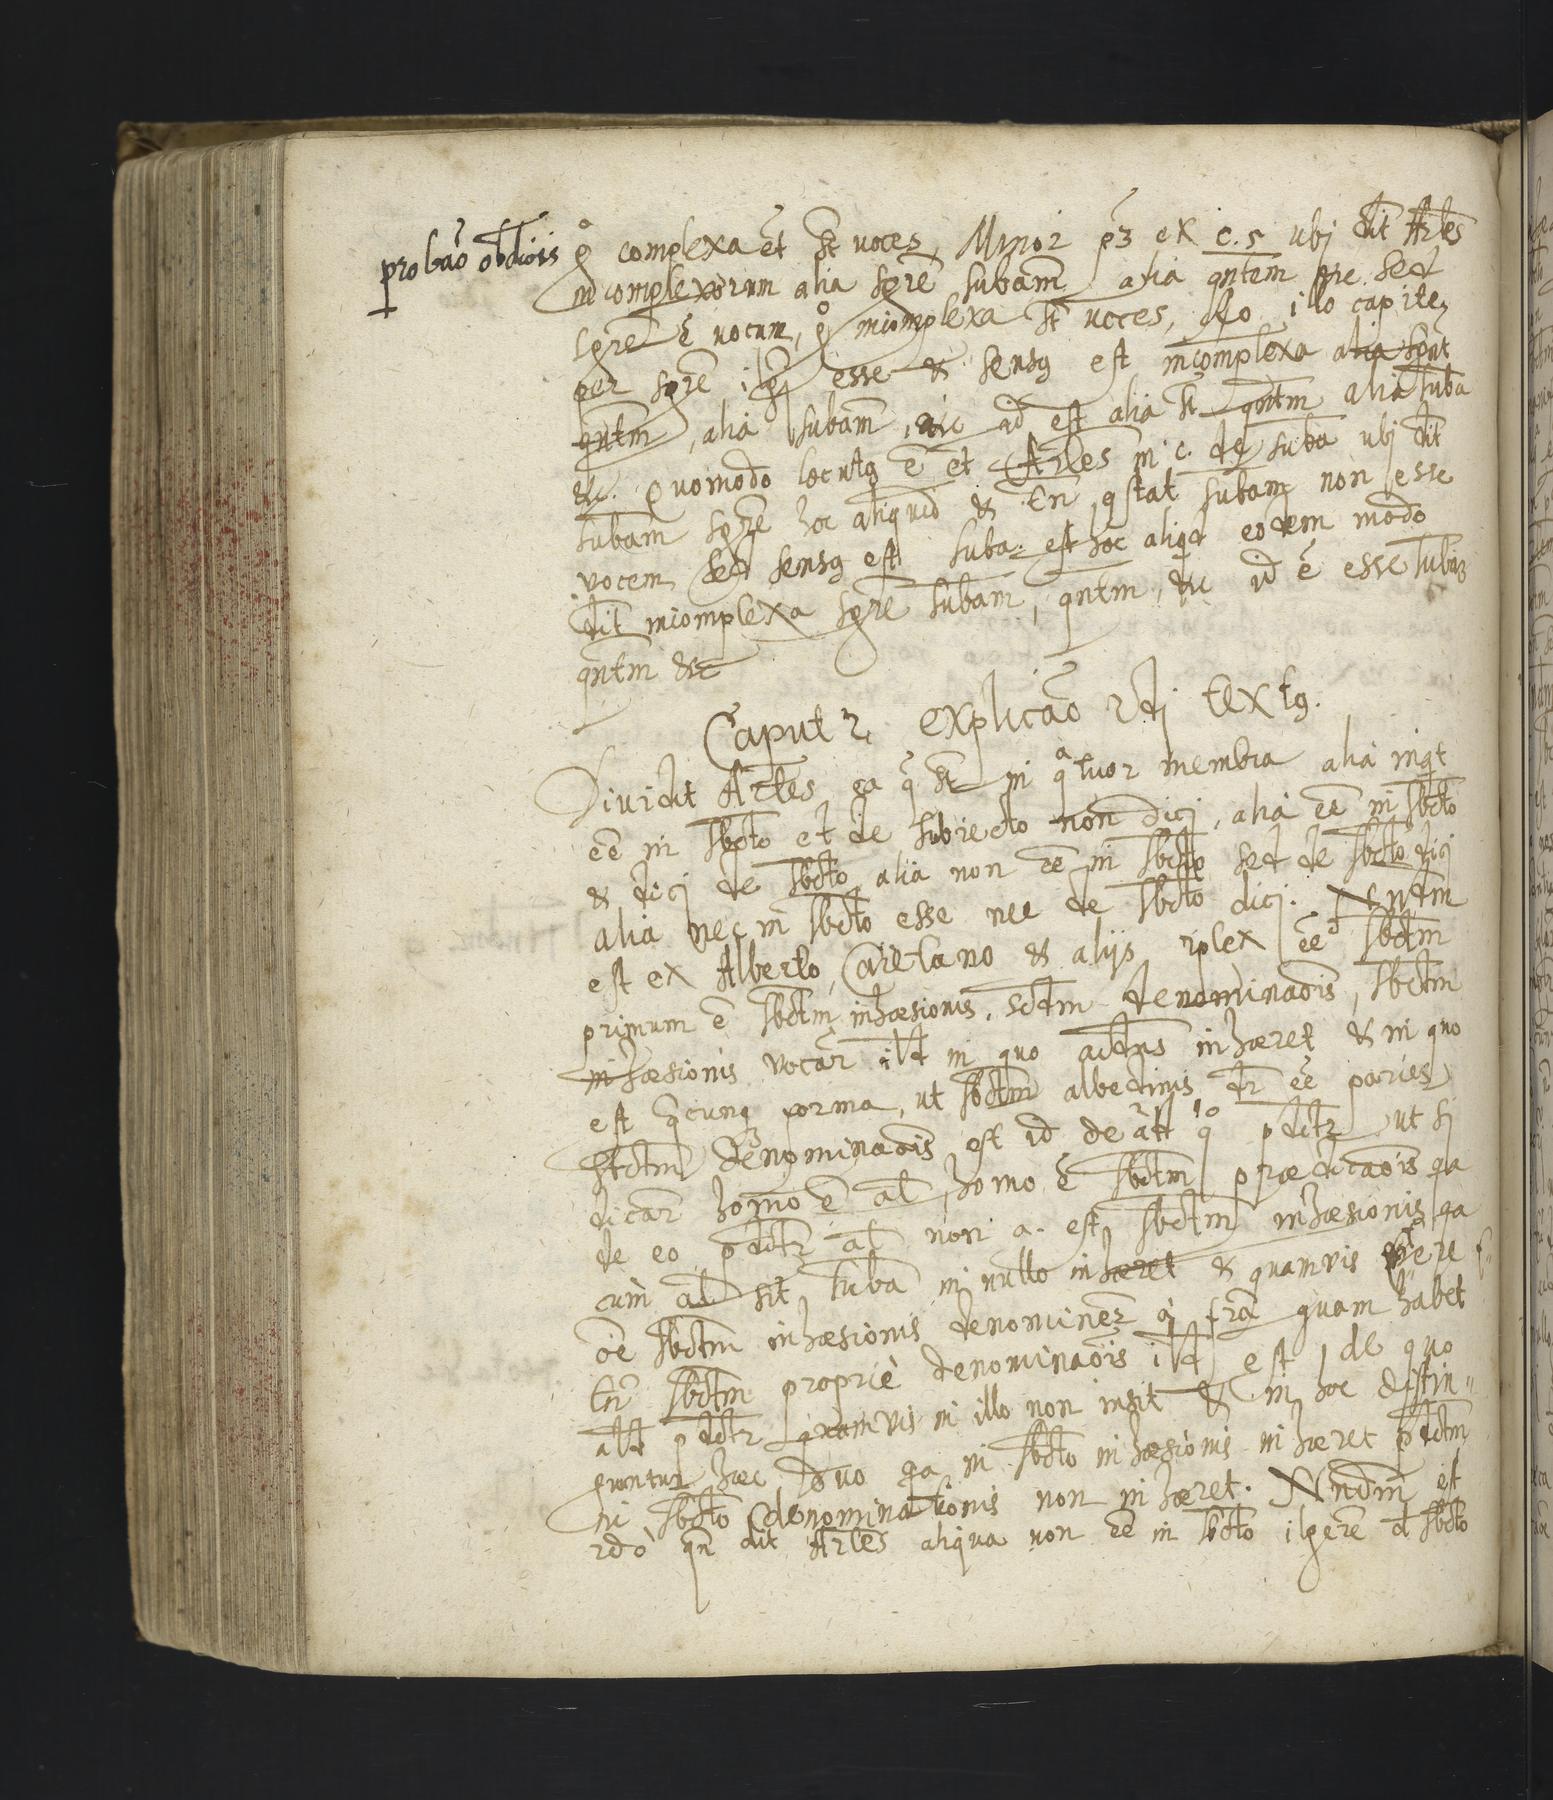 probaō obdiōis
complexa et̄ st̄ voces, Minor pꝫ ex c. 5 ubj dit Artēs
incomplexorum alia sgrē subam̄ alia qntem̄ sed
sgre ē vocum, incomplexa st̄ voces, Ro illo capite
per sgrē esse & sensꝯ est incomplexa
qntm̄, alia subam̄, id est alia st̄ qntm̄ alia suba
&c. quomodo locutꝯ ē et̄ Artēs in c. de suba ubj dit
subam̄ sgrē hoc aliquid & tn̄ ꝯstat subam̄ non esse
vocem, sed sensꝯ est suba est hoc aliqd eodem modo
dit incomplexa sgrē subam̄, qntm̄, &c id ē esse
qntm̄ &c
Caput 2. explicaō 2dj textꝯ.
Dividit Artēs ea q̄ st̄ in qatuor membra alia inqt
eē in sbcto et de subiecto non dicj, alia eē in sbcto
& dicj de sbcto, alia non eē in sbcto sed de sbcto dicj
alia nec in sbcto esse nec de sbcto dicj. Nndm
est ex Alberto, Caietano & alijs eē sbctm
primum ē sbctm inhæsionis, scdm denominaōis, sbctm
inhæsionis vocār ill̄d in quo accdns inhæret & in quo
est forma, ut sbctm albedinis dr̄ eē paries
sbctm denominaōis est id de pdctr ut sj
dicār homo ē al̄, homo ē sbctm prædicaōis qa
de eo pdctr al̄ non a. est sbctm inhæsionis qa
cum al̄ sit suba in nullo inhæret & quamvis
oē sbctm inhæsionis denominer̄ quam habet
tn̄ sbctm propriè denominaōis ill̄d est, de quo
pdctr quamvis in illo non insit & in hoc distin=
guntur hæc duo qa in sbcto inhæsionis inhæret pdctm
in sbcto denominationis non inhæret. Nndm est
2dò qn̄ dit Artēs aliqua non eē in sbcto